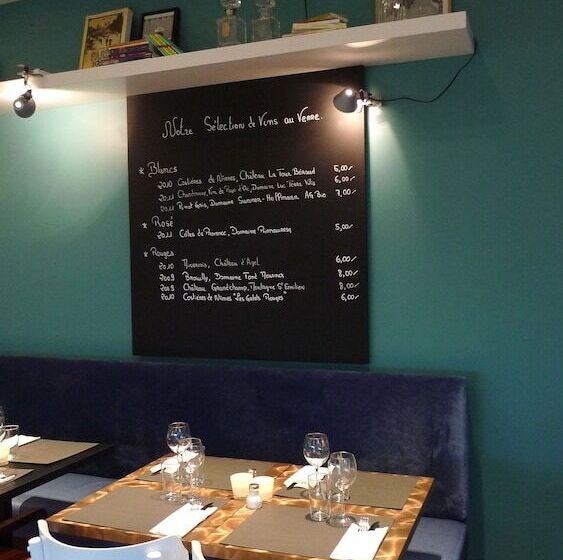 Notre Sélection de Vins au Verre.
* Blancs
2010 Costières de Nîmes, Château La Tour Béraud 5,00
2011 Chardonnay, Vin de Pays d'Oc, Domaine Luc 6,00
2011 Pinot Gris, Domaine Hoffmann AG Bio 7,00
* Rosé
2011 Côtes de Provence, Domaine 5,00
* Rouges
2010 Minervois, Château d'Agel 6,00
2009 Brouilly, Domaine Tand 8,00
2009 Château Grandchamp, Montagne St Emilion 8,00
2010 Costières de Nîmes "Les Galets Rouges" 6,00